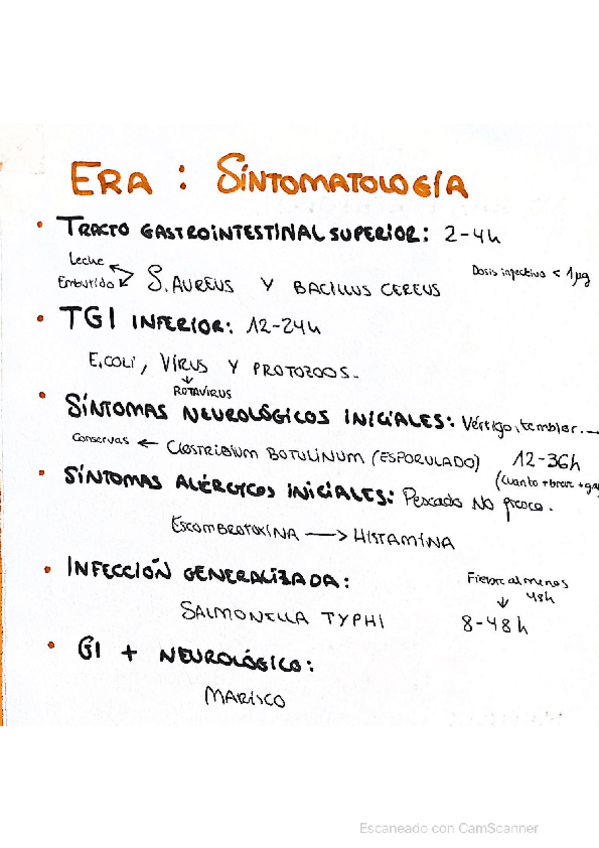 ERA : SÍNTOMATOLOGÍA
• TRACTO GASTROINTESTINAL SUPERIOR: 2-4h
Leche
Embutido ↙ S. AUREUS Y BACILLUS CEREUS Dosis infectiva < 1µg
• TGI INFERIOR: 12-24h
E.COLI, VÍRUS Y PROTOZOOS.
↓
ROTAVIRUS
• SÍNTOMAS NEUROLÓGICOS INICIALES: Vértigo, temblor...
Conservas ← CLOSTRIDIUM BOTULINUM (ESPORULADO) 12-36h
(Cuanto + breve + gra
• SÍNTOMAS ALÉRGICOS INICIALES: Pescado NO fresco.
ESCOMBROTOXINA → HISTAMINA
• INFECCIÓN GENERALIZADA: Fiebre al menos
↓ 48h
SALMONELLA TYPHI 8-48h
• GI + NEUROLÓGICO:
MARISCO
Escaneado con CamScanner